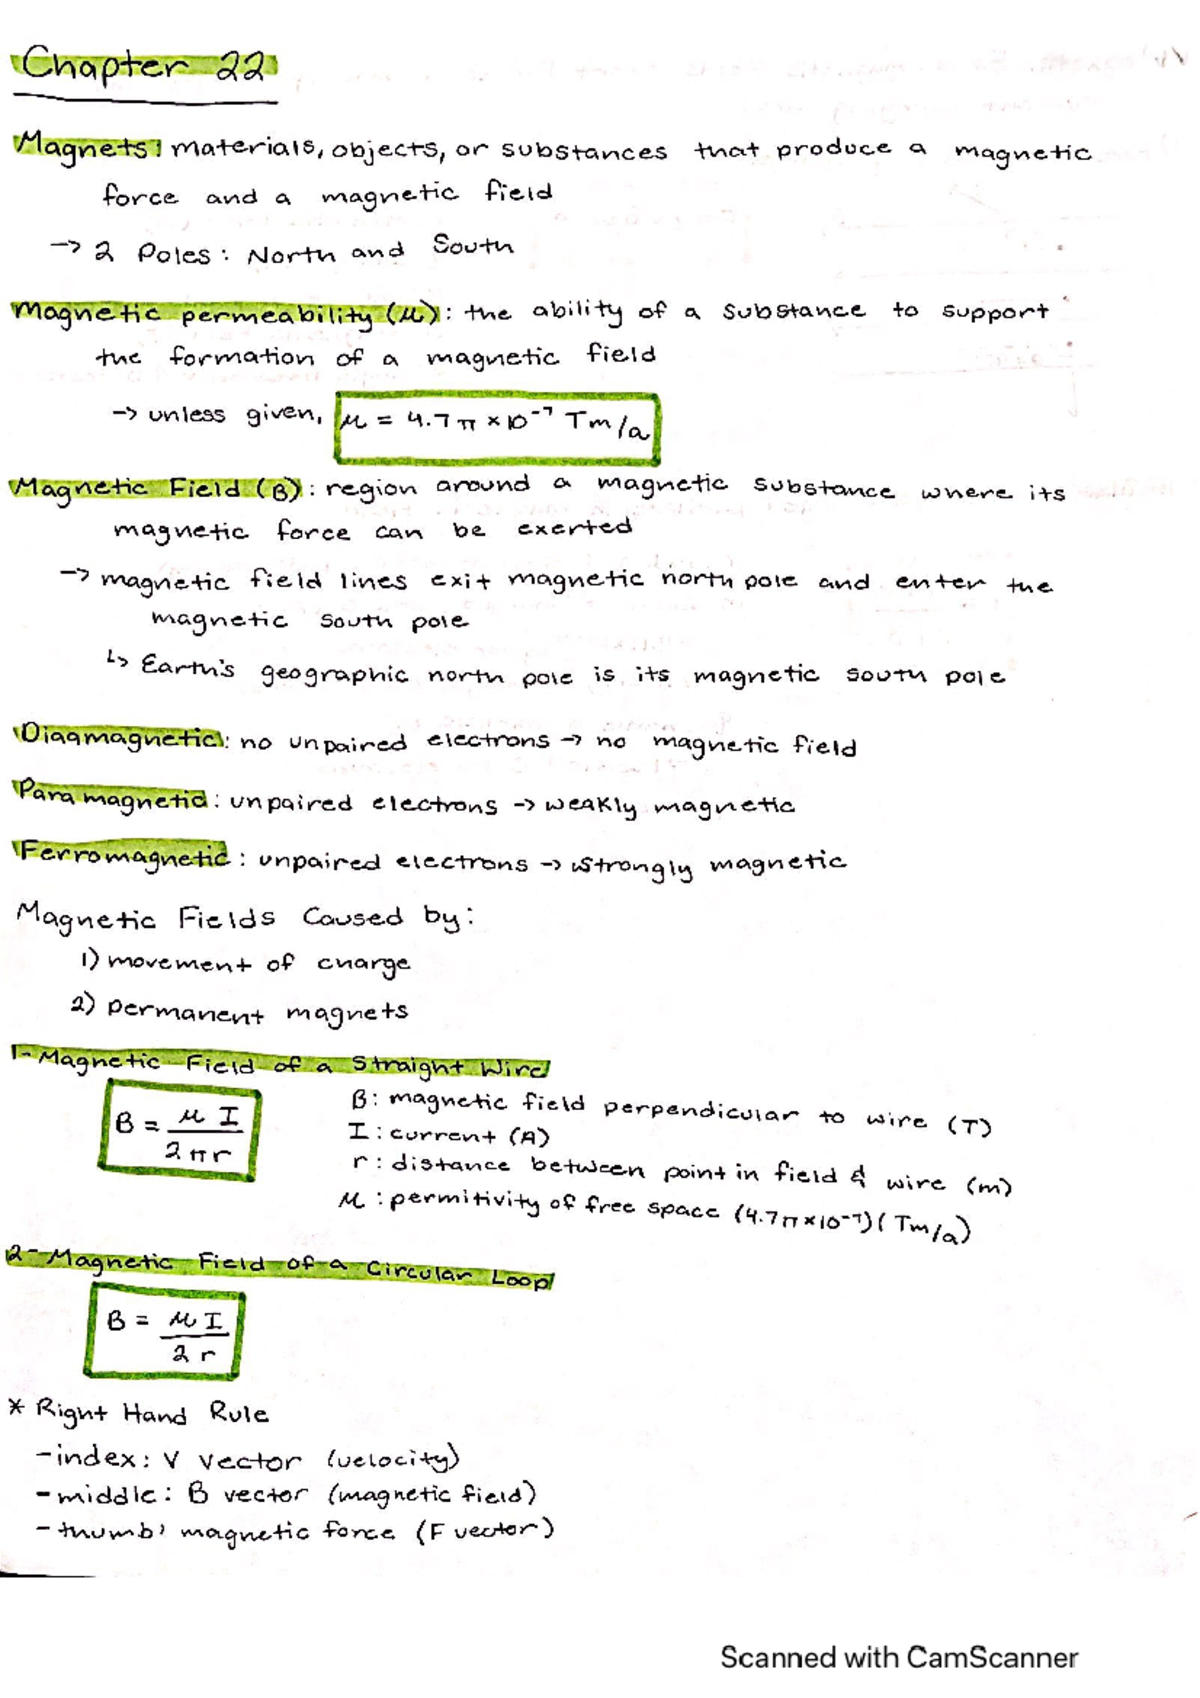 Chapter 22
Magnets: materials, objects, or substances that produce a magnetic
force and a magnetic field
→ 2 Poles: North and South
Magnetic permeability (μ): the ability of a substance to support
the formation of a magnetic field
→ unless given, μ = 4.7π × 10⁻⁷ Tm/a
Magnetic Field (B): region around a magnetic substance where its
magnetic force can be exerted
→ magnetic field lines exit magnetic north pole and enter the
magnetic south pole
↳ Earth's geographic north pole is its magnetic south pole
Diaamagnetic: no unpaired electrons → no magnetic field
Paramagnetic: unpaired electrons → weakly magnetic
Ferromagnetic: unpaired electrons → strongly magnetic
Magnetic Fields Caused by:
1) movement of charge
2) permanent magnets
1- Magnetic Field of a Straight Wire
B = μI / 2πr
B: magnetic field perpendicular to wire (T)
I: current (A)
r: distance between point in field & wire (m)
μ: permitivity of free space (4.7π×10⁻⁷)(Tm/a)
2- Magnetic Field of a Circular Loop
B = μI / 2r
* Right Hand Rule
- index: V vector (velocity)
- middle: B vector (magnetic field)
- thumb: magnetic force (F vector)
Scanned with CamScanner